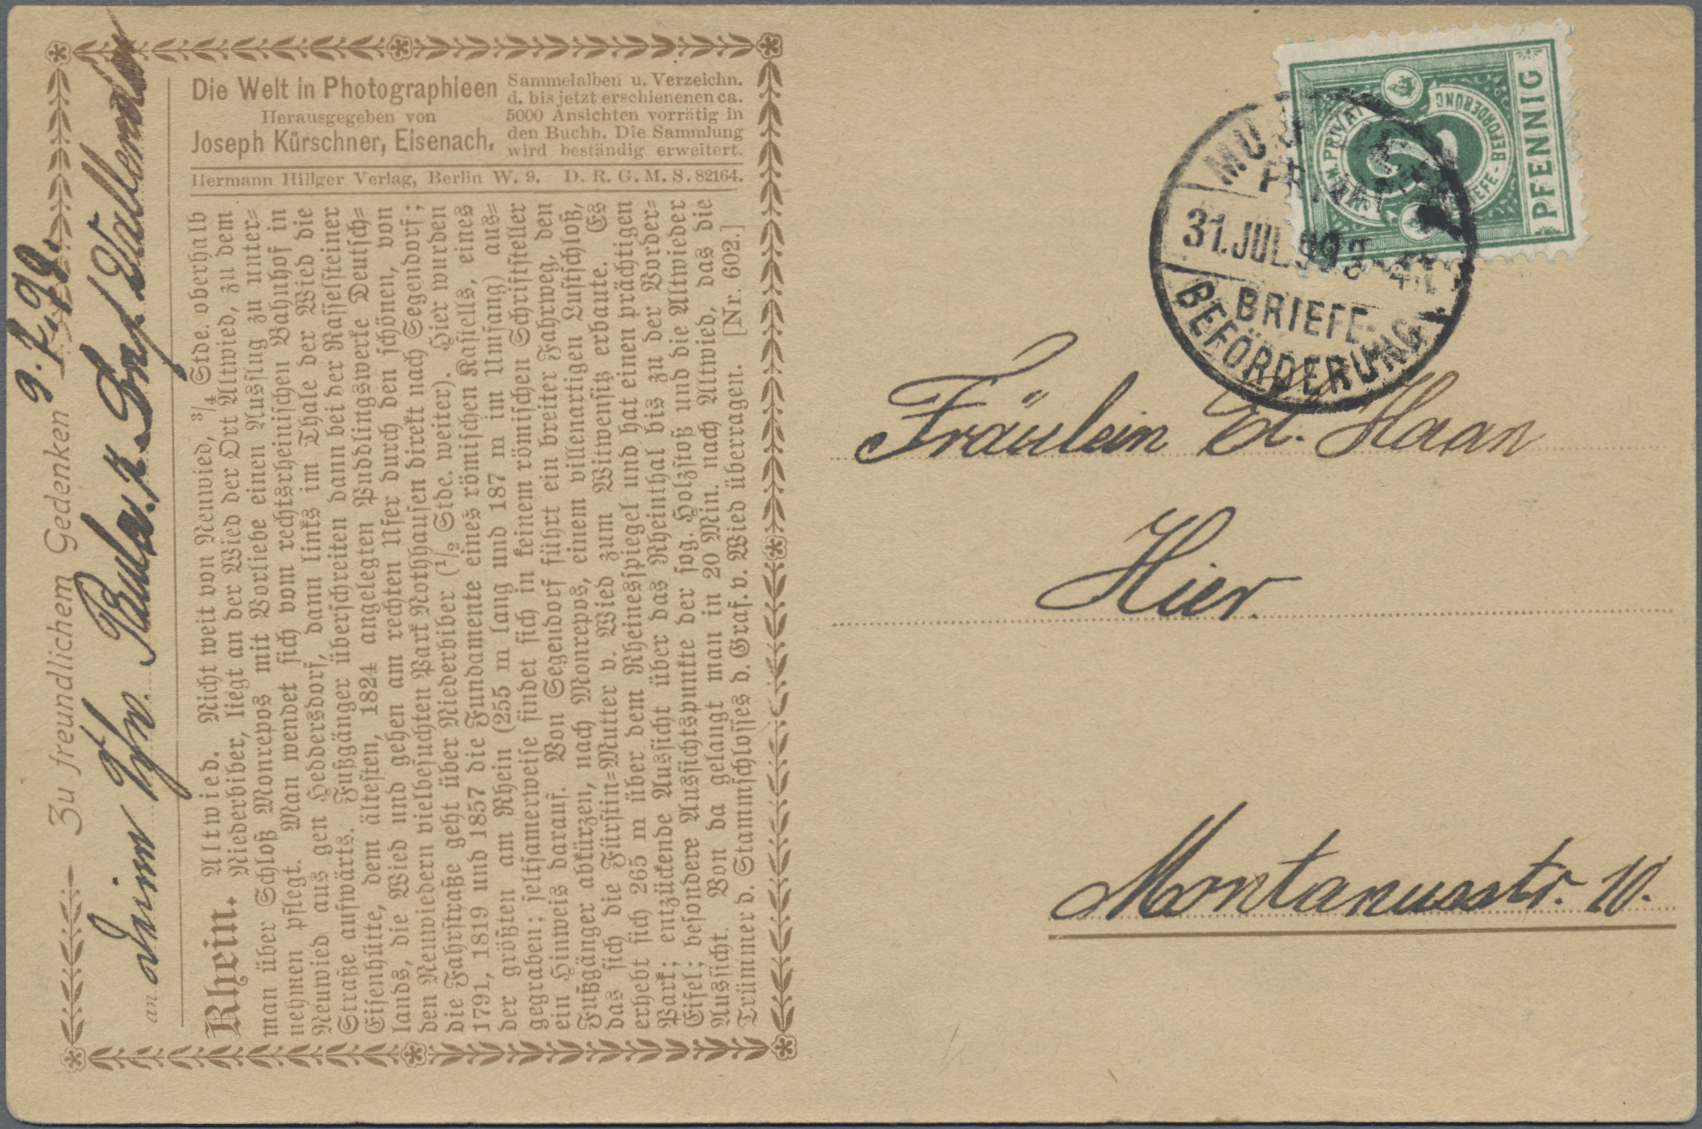 Zu freundlichem Gedenken
an
Die Welt in Photographieen
Herausgegeben von
Joseph Kürschner, Eisenach.
Sammelalben u. Verzeichn.
d. bis jetzt erschienenen ca.
5000 Ansichten vorrätig in
den Buchh. Die Sammlung
wird beständig erweitert.
Hermann Hillger Verlag, Berlin W. 9. D. R. G. M. S. 82164.
Rhein. Altwied. Nicht weit von Neuwied, 3/4 Stde. oberhalb
Niederbiber, liegt an der Wied der Ort Altwied, zu dem
man über Schloß Monrepos mit Vorliebe einen Ausflug zu unter=
nehmen pflegt. Man wendet sich vom rechtsrheinischen Bahnhof in
Neuwied aus gen Heddersdorf, dann links im Thale der Wied die
Straße aufwärts. Fußgänger überschreiten dann bei der Rasselsteiner
Eisenhütte, dem ältesten, 1824 angelegten Puddlingswerke Deutsch=
lands, die Wied und gehen am rechten Ufer durch den schönen, von
den Neuwiedern vielbesuchten Park Nothhausen direkt nach Segendorf;
die Fahrstraße geht über Niederbiber (1/2 Stde. weiter). Hier wurden
1791, 1819 und 1857 die Fundamente eines römischen Kastells, eines
der größten am Rhein (255 m lang und 187 m im Umfang) aus=
gegraben; seltsamerweise findet sich in keinem römischen Schriftsteller
ein Hinweis darauf. Von Segendorf führt ein breiter Fahrweg, den
Fußgänger abkürzen, nach Monrepos, einem villenartigen Lustschloß,
das sich die Fürstin=Mutter v. Wied zum Witwensitz erbaute. Es
erhebt sich 265 m über dem Rheinesspiegel und hat einen prächtigen
Park; entzückende Aussicht über das Rheinthal bis zu der Vorder=
Eifel; besondere Aussichtspunkte der sog. Holzstoß und die Altwieder
Aussicht. Von da gelangt man in 20 Min. nach Altwied, das die
Trümmer d. Stammschlosses d. Graf. v. Wied überragen. [Nr. 602.]
PRIVAT
BRIEFE-BEFÖRDERUNG
2
PFENNIG
31.JUL.99
BRIEFE-
BEFÖRDERUNG
Fräulein El. Haan
Hier.
Montanusstr. 10.